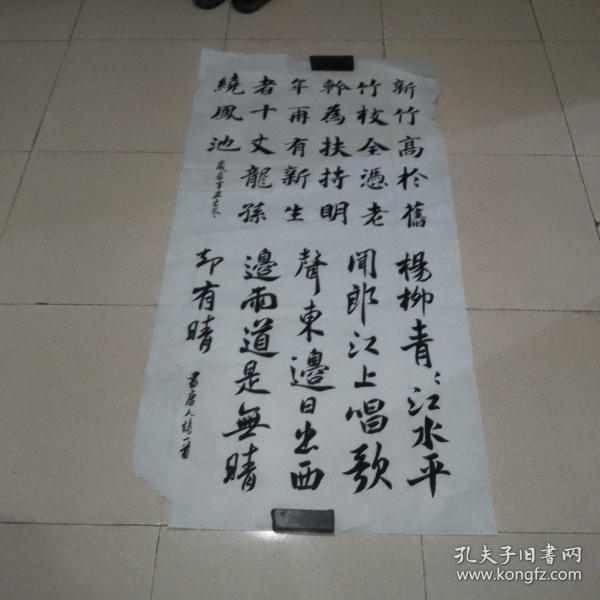 新竹高於舊
竹枝全憑老
幹為扶持明
年再有新生
者十丈龍孫
繞鳳池
楊柳青〻江水平
聞郎江上唱歌
聲東邊日出西
邊雨道是無晴
却有晴
書唐人詩一首
孔夫子旧书网
www.kongfz.com